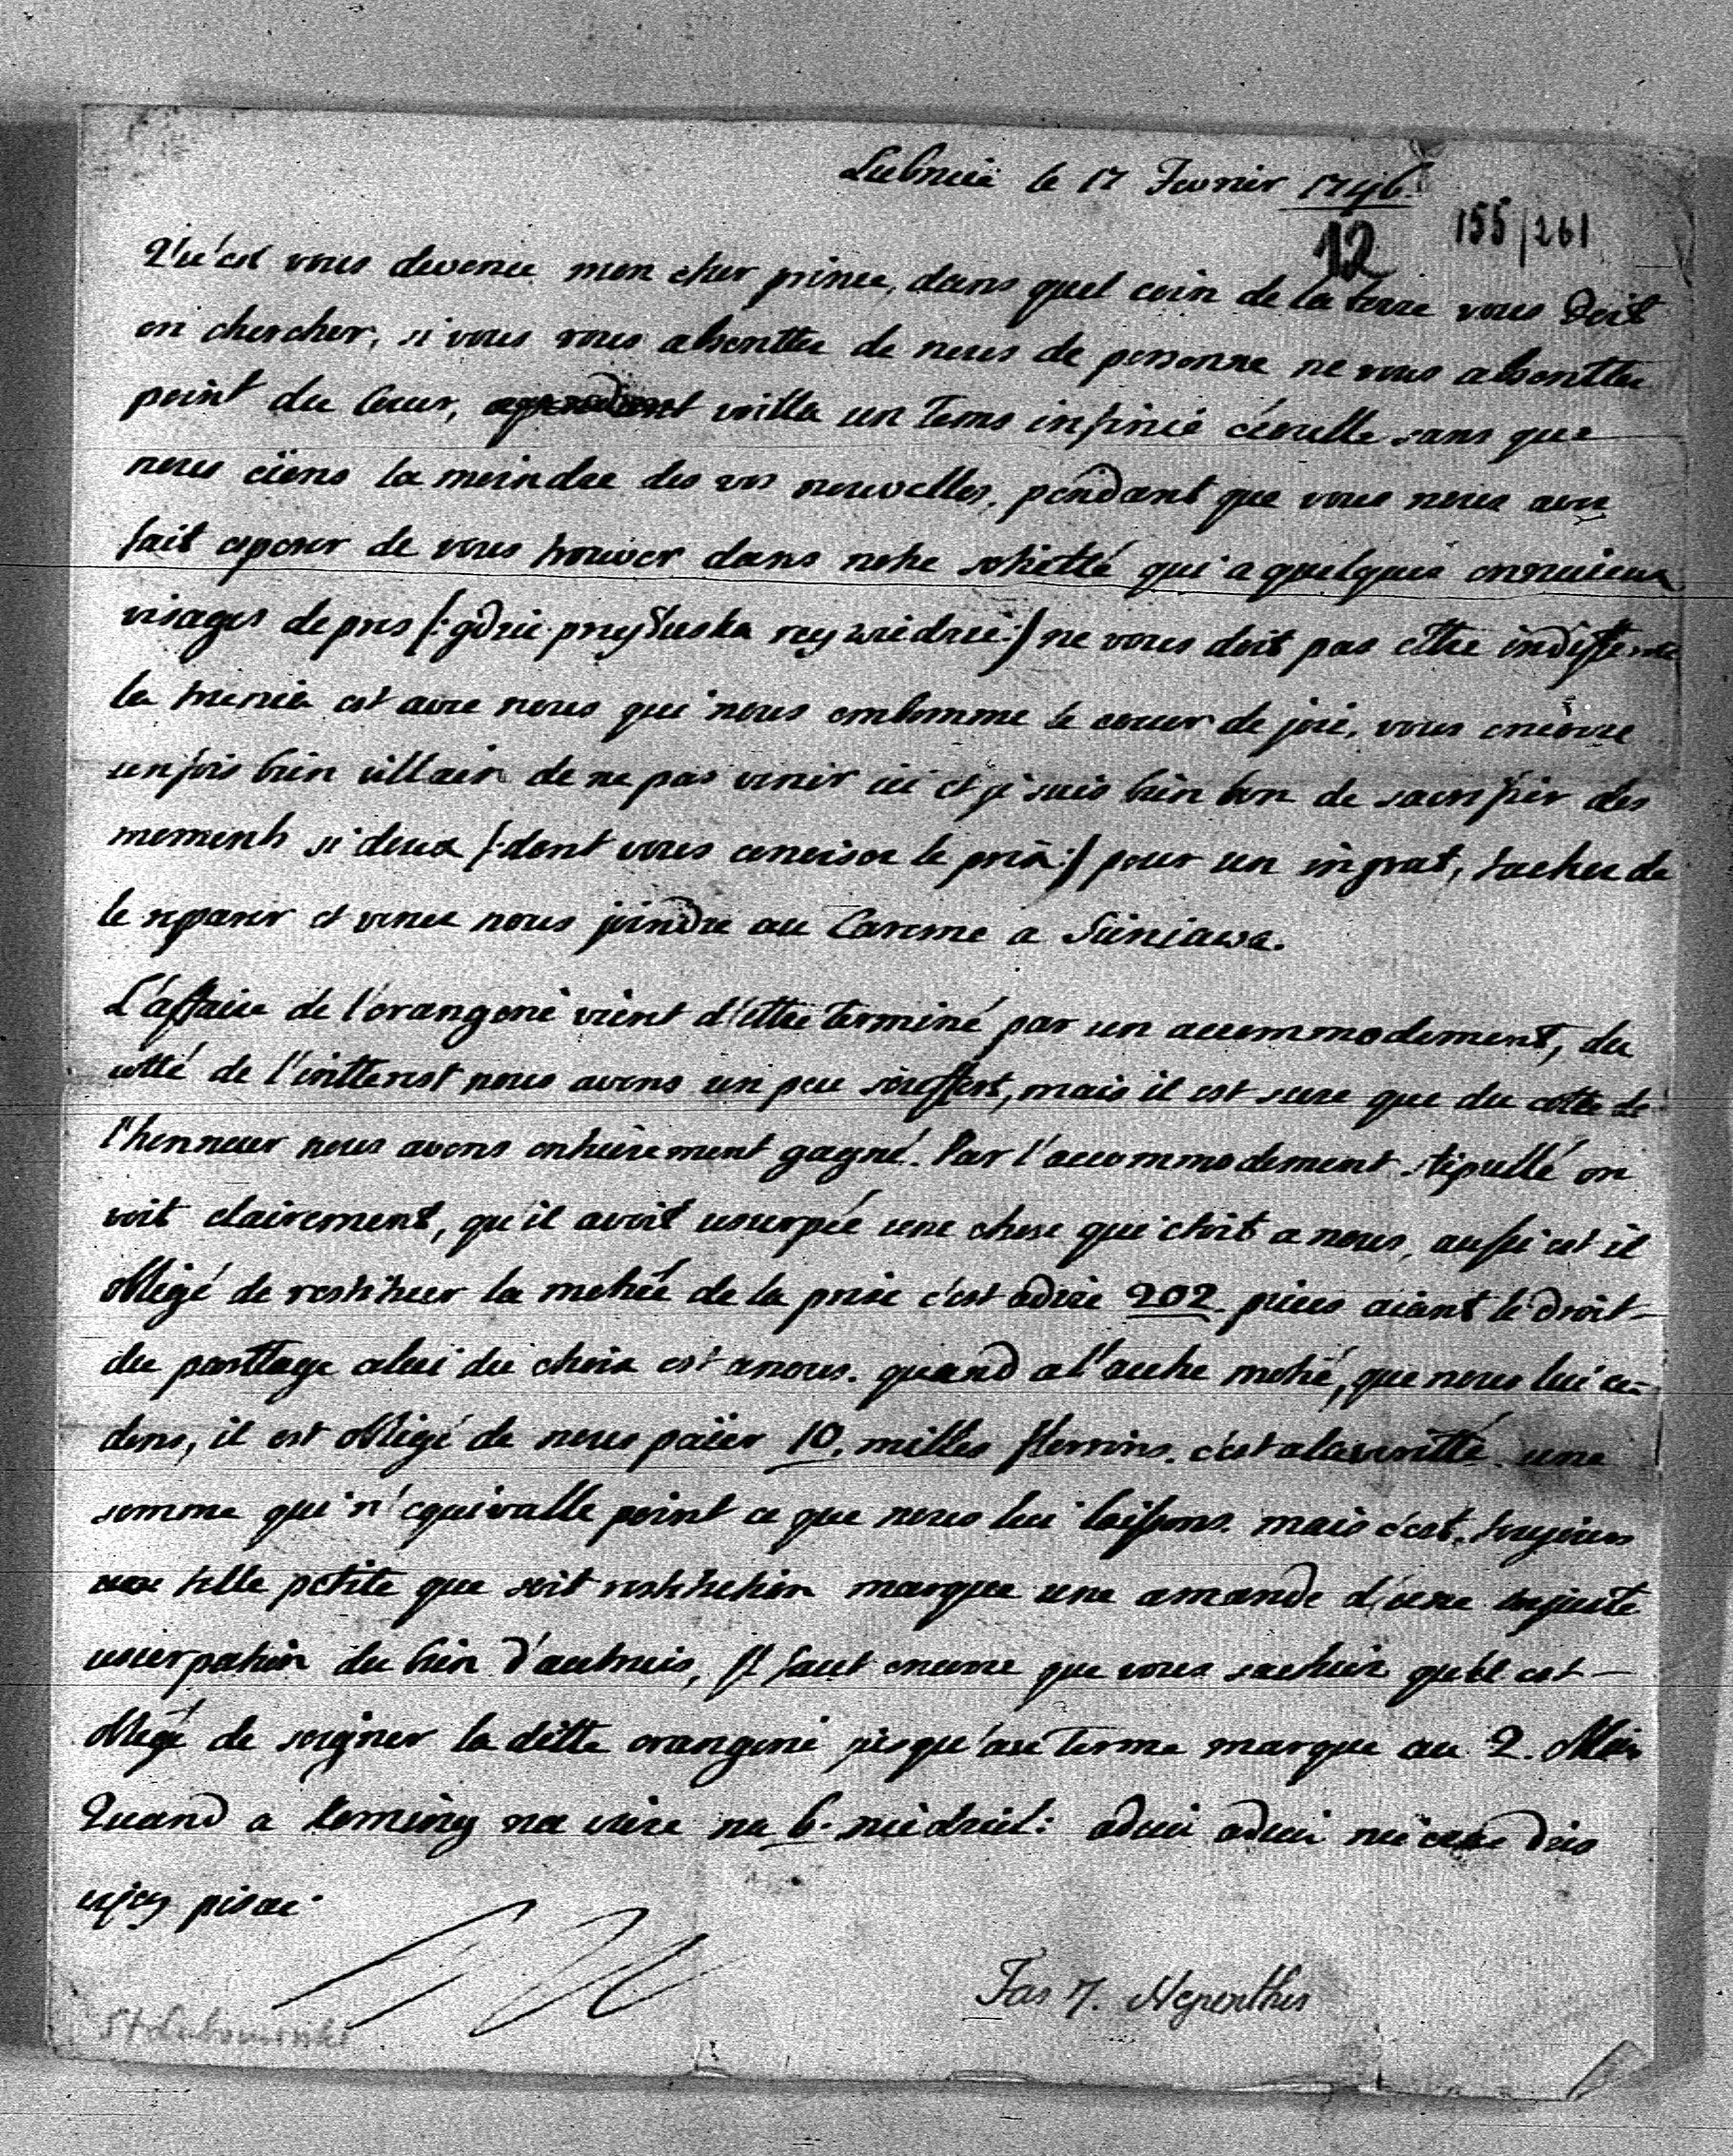 le 17 Fevrier 1746.
155/261
12
Qu'est vous devenu mon cher prince, dans quel coin de la terre vous doit
on chercher, si vous vous absentter de nous de personne ne vous absentter
point du Coeur, voilla un tems infinie écoulle sans que
nous aïons la moindre des vos nouvelles, pendant que vous nous avez
fait esperer de vous trouver dans notre sotietté qui a quelques ennuieux
visages de pres /: gdzie :/ ne vous doit pas ettre indifferente
la est avec nous qui nous embomme le coeur de joie, vous encorre
un fois bien villain de ne pas venir ici et je suis bien bon de sacrifier des
moments si doux /: dont vous conoisse le prix :/ pour un ingrat, tachez de
le reparer et venez nous joindre au Careme a Siniawa.
L'affaire de l'orangerie vient d'ettre terminé par un accommodement, du
cotté de l'intterest nous avons un peu souffert, mais il est sure que du cotte de
l'honneur nous avons entiérement gagné. Par l'accommodement stipullé on
voit clairement, qu'il avoit usurpée une chose qui etoit a nous, aussi est il
obligé de restituer la motiée de la prise c'est adire 202 pieces aiant le droit
du parttage celui du choix est a nous. quand a l'autre motié, que nous lui ce-
dons, il est obligé de nous païer 10. milles florrins. c'est a la veritté une
somme qui n'equivalle point ce que nous lui laissons. mais c'est toujours
telle petite que soit restitution marque une amande d'une injuste
usurpation du bien d'autruis, Il faut encorre que vous sachiez qu'il est
obligé de soigner la ditte orangerie jusqu'au terme marque au 2. Mai
Quand a na na 6. niedziel: adieu adieu dzis
wiecy pisac
Fas 7. Nepenthes
St Lubomirski